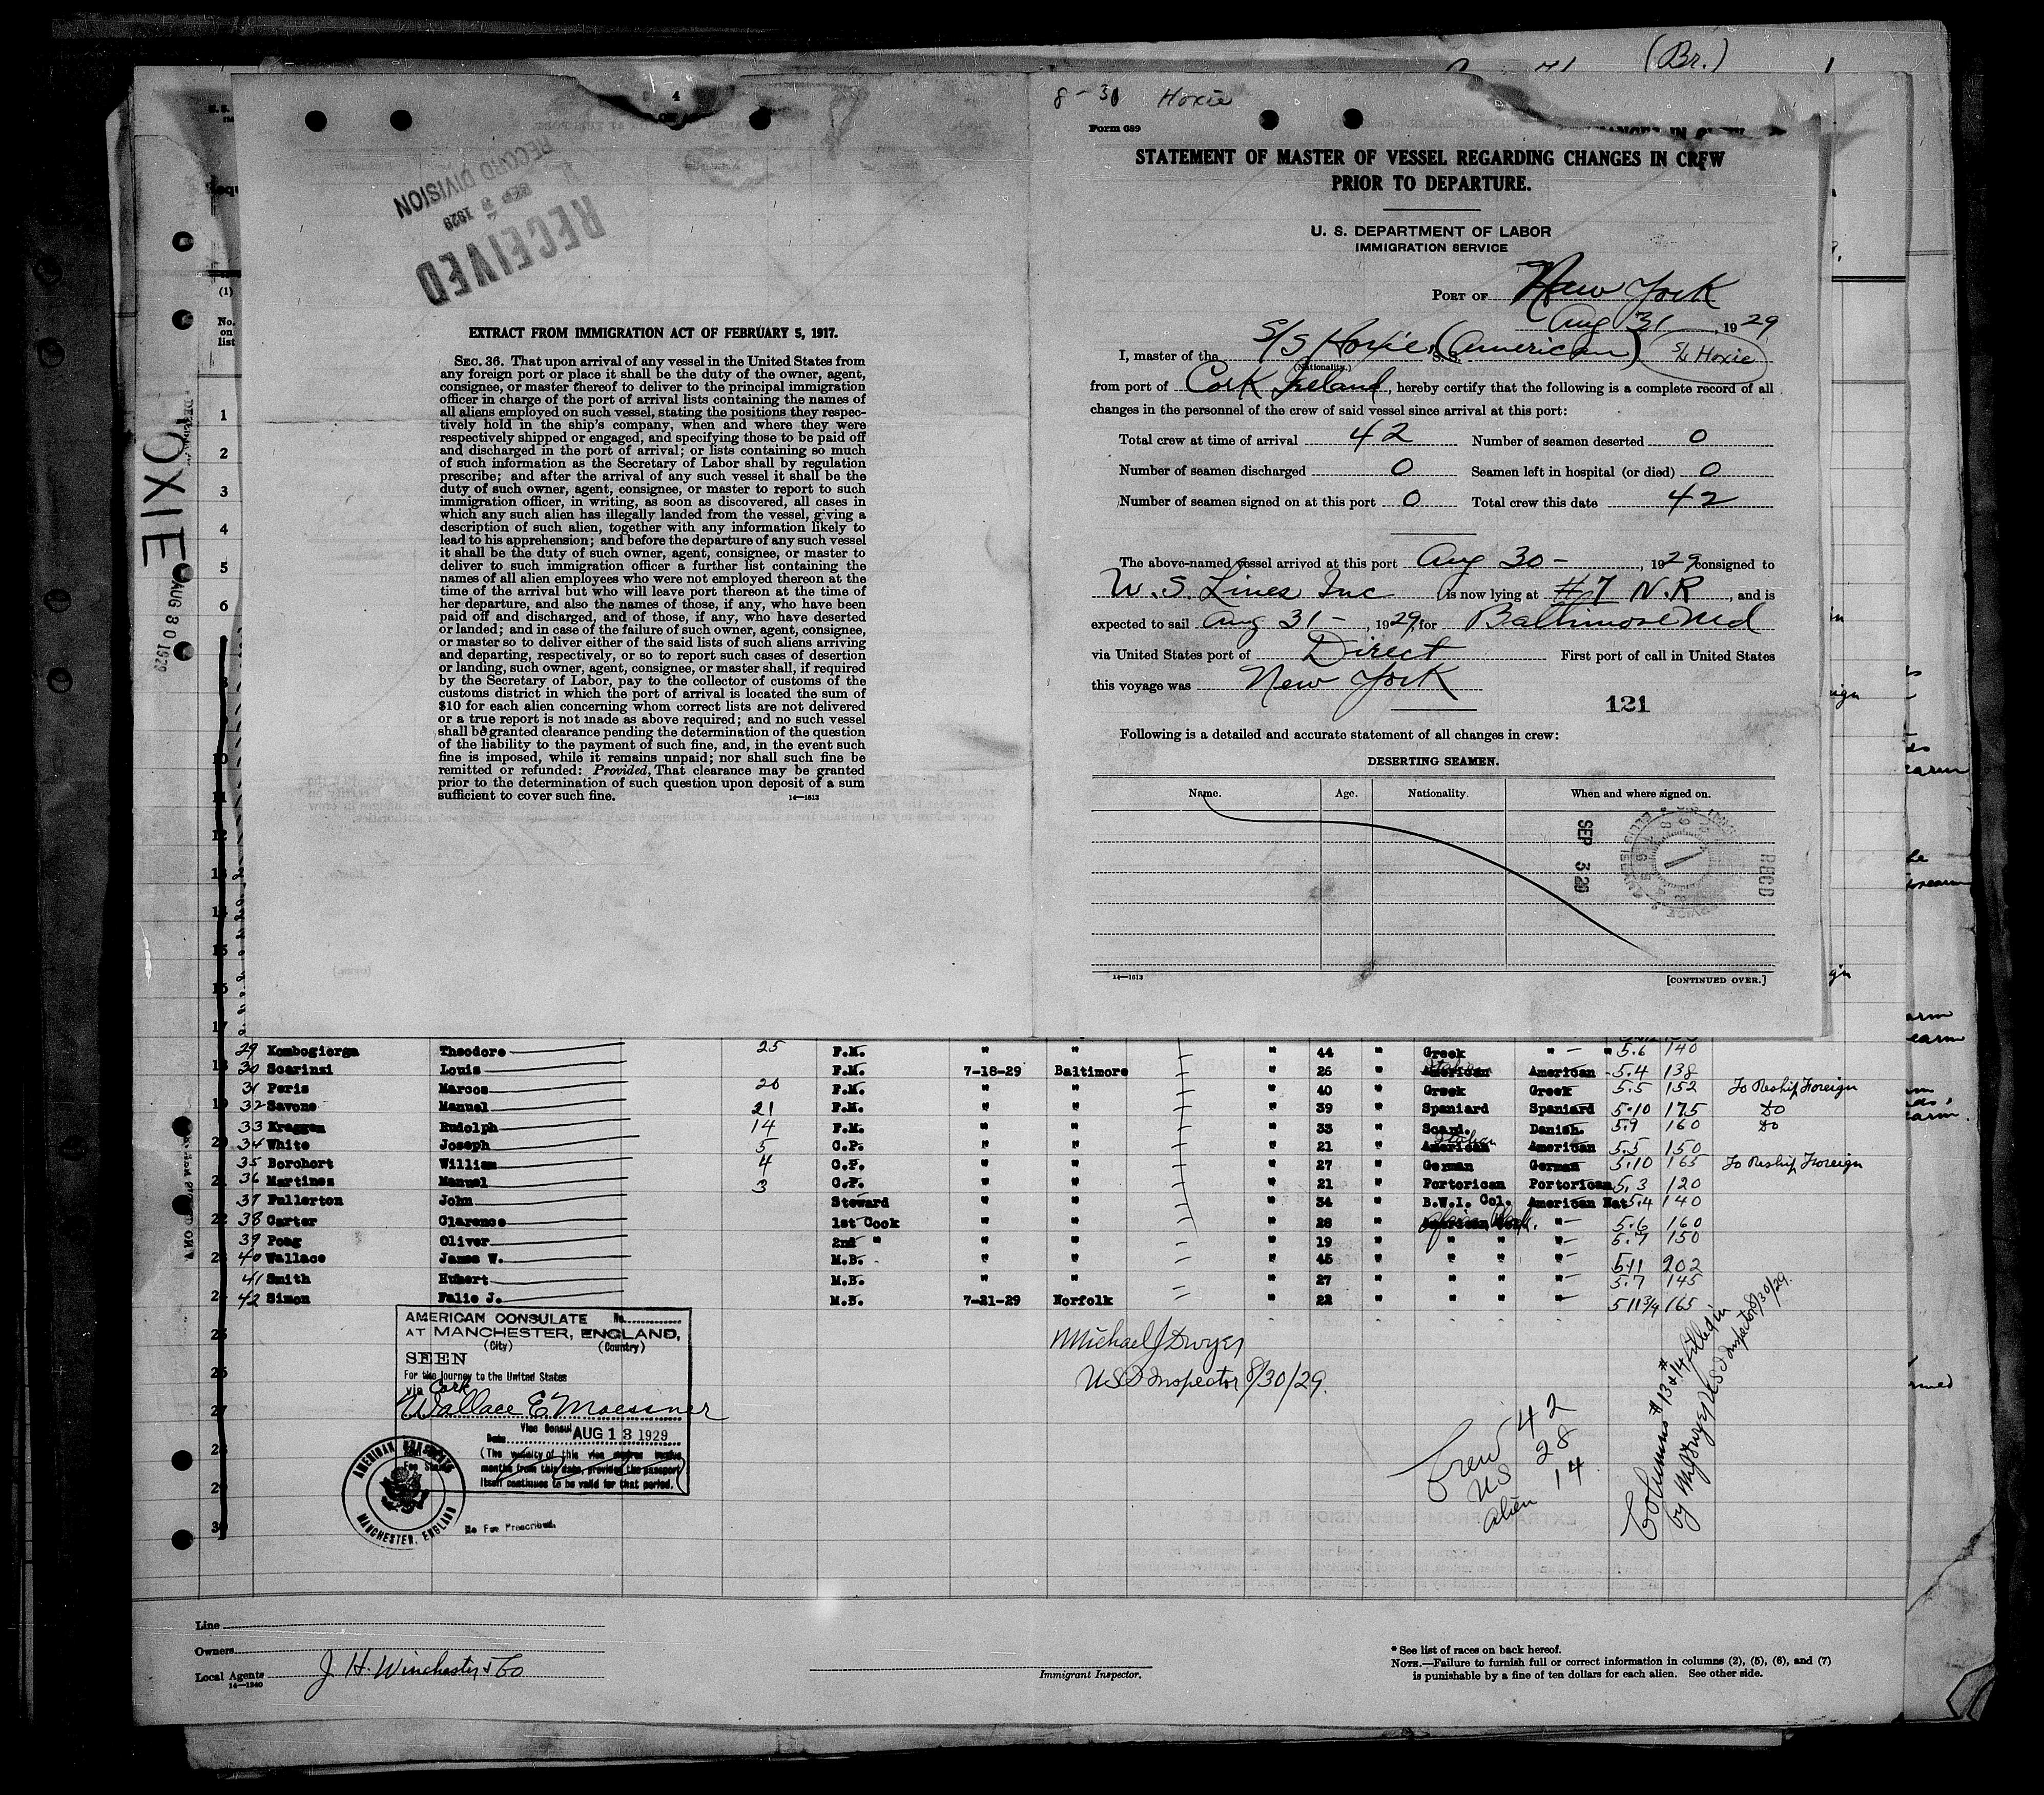 (Br.)
8-30 Hoxie
Form 689
STATEMENT OF MASTER OF VESSEL REGARDING CHANGES IN CREW
PRIOR TO DEPARTURE.
U. S. DEPARTMENT OF LABOR
IMMIGRATION SERVICE
PORT OF New York
Aug 31, 1929
I, master of the S/S Hoxie, S.S. (American) S/S Hoxie
(Nationality.)
from port of Cork Ireland, hereby certify that the following is a complete record of all
changes in the personnel of the crew of said vessel since arrival at this port:
Total crew at time of arrival 42 Number of seamen deserted 0
Number of seamen discharged 0 Seamen left in hospital (or died) 0
Number of seamen signed on at this port 0 Total crew this date 42
The above-named vessel arrived at this port Aug 30 -, 1929, consigned to
U.S. Lines Inc is now lying at #7 N.R, and is
expected to sail Aug 31 -, 1929, for Baltimore Md
via United States port of Direct First port of call in United States
this voyage was New York
121
Following is a detailed and accurate statement of all changes in crew:
DESERTING SEAMEN.
Name. Age. Nationality. When and where signed on.
SEP 3 29
RECD
14—1613 [CONTINUED OVER.]
RECEIVED
SEP 5 1929
RECORD DIVISION
EXTRACT FROM IMMIGRATION ACT OF FEBRUARY 5, 1917.
SEC. 36. That upon arrival of any vessel in the United States from
any foreign port or place it shall be the duty of the owner, agent,
consignee, or master thereof to deliver to the principal immigration
officer in charge of the port of arrival lists containing the names of
all aliens employed on such vessel, stating the positions they respec-
tively hold in the ship's company, when and where they were
respectively shipped or engaged, and specifying those to be paid off
and discharged in the port of arrival; or lists containing so much
of such information as the Secretary of Labor shall by regulation
prescribe; and after the arrival of any such vessel it shall be the
duty of such owner, agent, consignee, or master to report to such
immigration officer, in writing, as soon as discovered, all cases in
which any such alien has illegally landed from the vessel, giving a
description of such alien, together with any information likely to
lead to his apprehension; and before the departure of any such vessel
it shall be the duty of such owner, agent, consignee, or master to
deliver to such immigration officer a further list containing the
names of all alien employees who were not employed thereon at the
time of the arrival but who will leave port thereon at the time of
her departure, and also the names of those, if any, who have been
paid off and discharged, and of those, if any, who have deserted
or landed; and in case of the failure of such owner, agent, consignee,
or master so to deliver either of the said lists of such aliens arriving
and departing, respectively, or so to report such cases of desertion
or landing, such owner, agent, consignee, or master shall, if required
by the Secretary of Labor, pay to the collector of customs of the
customs district in which the port of arrival is located the sum of
$10 for each alien concerning whom correct lists are not delivered
or a true report is not made as above required; and no such vessel
shall be granted clearance pending the determination of the question
of the liability to the payment of such fine, and, in the event such
fine is imposed, while it remains unpaid; nor shall such fine be
remitted or refunded: Provided, That clearance may be granted
prior to the determination of such question upon deposit of a sum
sufficient to cover such fine. 14—1613
OXIE
AUG 30 1929
(1)
No.
on
list
1
2
3
4
5
6
8
9
10
11
12
13
14
15
16
17
29 Kombogiorga Theodore 25 F.M. " " " 44 " Greek " " 5.6 140
30 Scarinzi Louis F.M. 7-18-29 Baltimore " 26 " American Italian American 5.4 138
31 Peris Marcos 20 F.M. " " " 40 " Greek Greek 5.5 152 To Reship Foreign
32 Savone Manuel 21 F.M. " " " 39 " Spaniard Spaniard 5.10 175 Do
33 Kraggen Rudolph 14 F.M. " " " 33 " Scand. Danish. 5.9 160 Do
34 White Joseph 5 C.P. " " " 21 " American Italian American 5.5 150
35 Borchert William 4 C.P. " " " 27 " German German 5.10 165 To Reship Foreign
36 Martinez Manuel 3 C.P. " " " 21 " Portorican Portorican 5.3 120
37 Fullerton John Steward " " " 34 " B.W.I. Col. American Nat 5.4 140
38 Carter Clarence 1st Cook " " " 28 " American " 5.6 160
39 Poag Oliver 2nd " " " " 19 " " " " 5.7 150
40 Wallace James W. M.B. " " " 45 " " " " 5.11 202
41 Smith Hubert M.B. " " " 27 " " " " 5.7 145
42 Simon Falie J. M.B. 7-21-29 Norfolk " 22 " " " " 5 11 3/4 165
AMERICAN CONSULATE No.
AT MANCHESTER, ENGLAND,
(City) (Country)
SEEN
For the Journey to the United States
via Cork
Wallace E. Moessner
Vice Consul
Date AUG 13 1929
(The validity of this visa expires twelve
months from this date, provided the passport
itself continues to be valid for that period.
AMERICAN CONSULATE
MANCHESTER, ENGLAND
No Fee Prescribed.
Michael J Dwyer
US Inspector 8/30/29.
Crew 42
US 28
Alien 14
Columns #13 & #14 filled in
by MJDwyer US Inspector 8/30/29.
Line
Owners
Local Agents J. H. Winchester & Co
14—1240
Immigrant Inspector.
* See list of races on back hereof.
NOTE.—Failure to furnish full or correct information in columns (2), (5), (6), and (7)
is punishable by a fine of ten dollars for each alien. See other side.